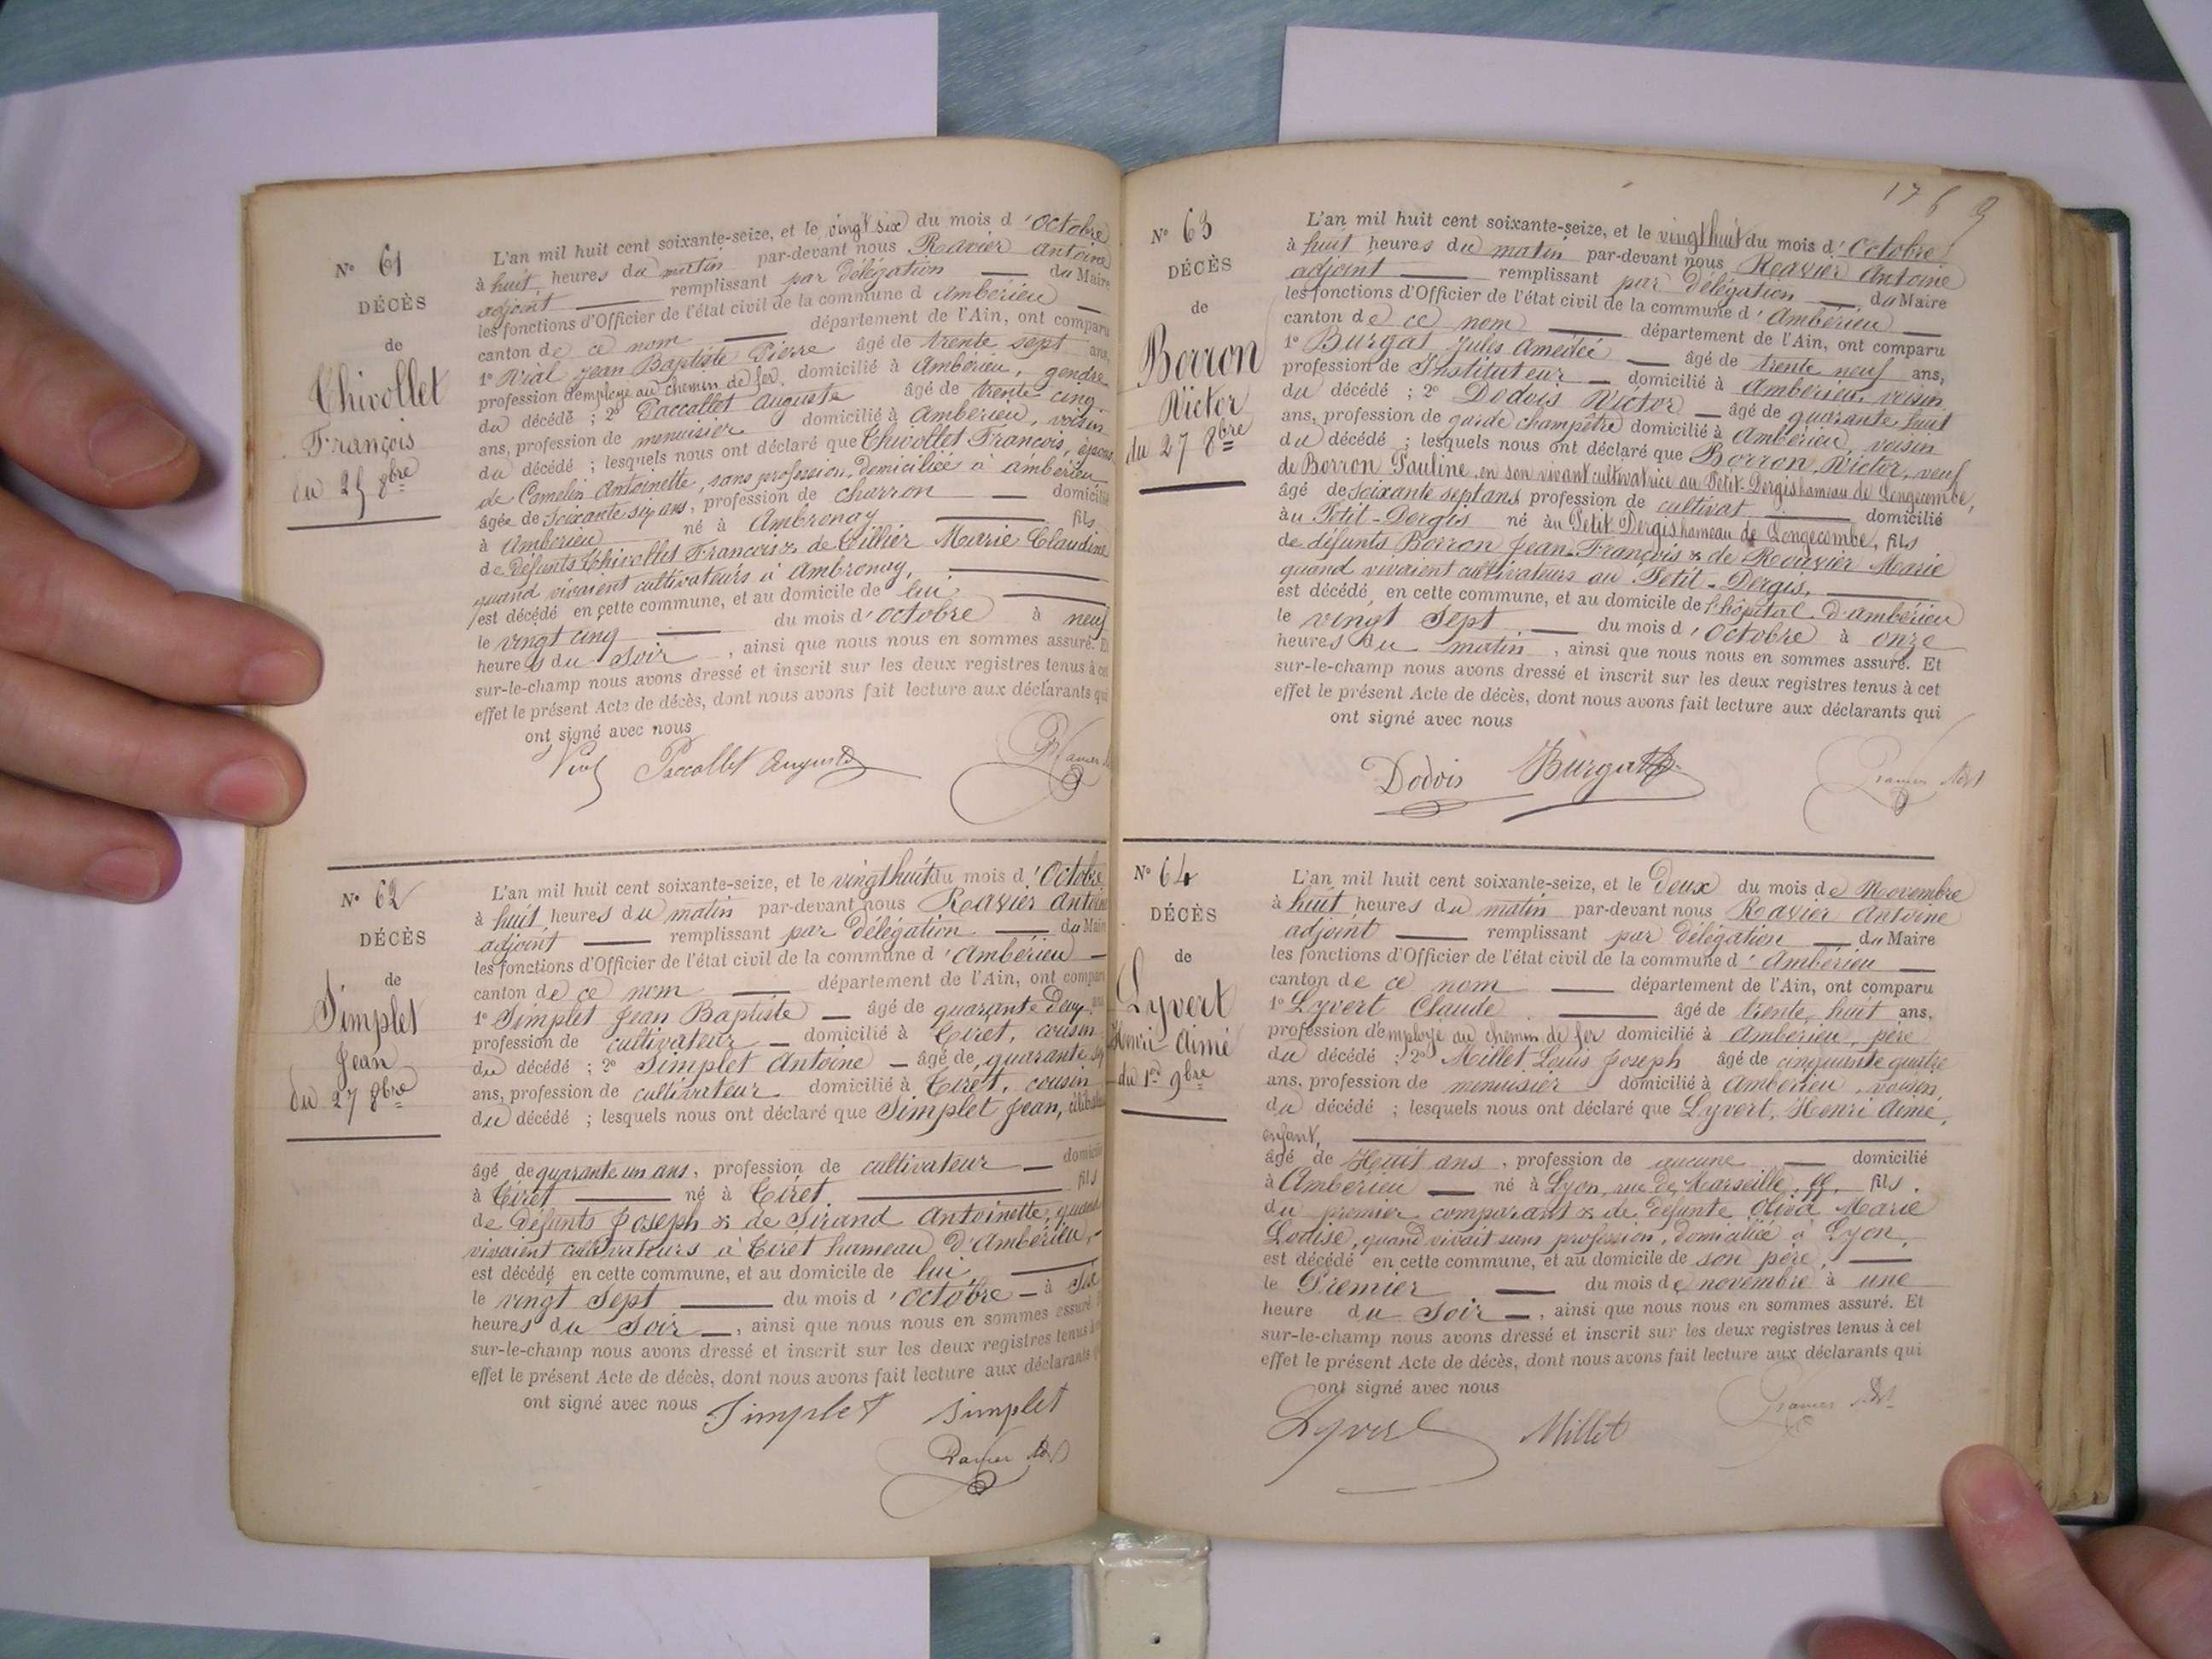 N° 61
DÉCÈS
de
Chivollet
François
du 25 8bre
L'an mil huit cent soixante-seize, et le vingt six du mois d'Octobre
à huit heures du matin par-devant nous Ravier Antoine
adjoint remplissant par délégation du Maire
les fonctions d'Officier de l'état civil de la commune d'Ambérieu
canton de ce nom département de l'Ain, ont comparu
1° Vial Jean Baptiste Pierre âgé de trente sept ans,
profession d'employé au chemin de fer, domicilié à Ambérieu, gendre
du décédé ; 2° Paccallet Auguste âgé de trente-cinq
ans, profession de menuisier domicilié à Ambérieu, voisin
du décédé ; lesquels nous ont déclaré que Chivollet François, époux
de Camelin Antoinette, sans profession, domiciliée à Ambérieu
âgé de soixante six ans, profession de charron domicilié
à Ambérieu né à Ambronay fils
de défunts Chivollet François & de Cillier Marie Claudine
quand vivaient cultivateurs à Ambronay,
est décédé en cette commune, et au domicile de lui
le vingt cinq du mois d'octobre à neuf
heures du soir, ainsi que nous nous en sommes assuré. Et
sur-le-champ nous avons dressé et inscrit sur les deux registres tenus à cet
effet le présent Acte de décès, dont nous avons fait lecture aux déclarants qui
ont signé avec nous
Vial Paccallet Auguste Ravier
N° 62
DÉCÈS
de
Simplet
Jean
du 27 8bre
L'an mil huit cent soixante-seize, et le vingt huit du mois d'Octobre
à huit heures du matin par-devant nous Ravier Antoine
adjoint remplissant par délégation du Maire
les fonctions d'Officier de l'état civil de la commune d'Ambérieu
canton de ce nom département de l'Ain, ont comparu
1° Simplet Jean Baptiste âgé de quarante deux ans
profession de cultivateur domicilié à Tiret, cousin
du décédé ; 2° Simplet Antoine âgé de quarante
ans, profession de cultivateur domicilié à Tiret, cousin
du décédé ; lesquels nous ont déclaré que Simplet Jean, célibataire
âgé de quarante un ans, profession de cultivateur domicilié
à Tiret né à Tiret, fils
de défunts Joseph & de Sirand Antoinette, quand
vivaient cultivateurs à Tiret hameau d'Ambérieu,
est décédé en cette commune, et au domicile de lui,
le vingt sept du mois d'Octobre à six
heures du soir, ainsi que nous nous en sommes assuré. Et
sur-le-champ nous avons dressé et inscrit sur les deux registres tenus à cet
effet le présent Acte de décès, dont nous avons fait lecture aux déclarants qui
ont signé avec nous Simplet Simplet
Ravier Adt
176
N° 63
DÉCÈS
de
Borron
Victor
du 27 8bre
L'an mil huit cent soixante-seize, et le vingt huit du mois d'Octobre
à huit heures du matin par-devant nous Ravier Antoine
adjoint remplissant par délégation du Maire
les fonctions d'Officier de l'état civil de la commune d'Ambérieu
canton de ce nom département de l'Ain, ont comparu
1° Burgat Jules Amédée âgé de trente neuf ans,
profession de Instituteur domicilié à Ambérieu, voisin
du décédé ; 2° Dodois Victor âgé de quarante huit
ans, profession de garde champêtre domicilié à Ambérieu, voisin
du décédé ; lesquels nous ont déclaré que Borron, Victor, veuf
de Borron Pauline, en son vivant cultivatrice au Petit-Dergis hameau de Longecombe,
âgé de soixante sept ans profession de cultivat. domicilié
au Petit-Dergis né au Petit Dergis hameau de Longecombe, fils
de défunts Borron Jean-François & de Rouvier Marie
quand vivaient cultivateurs au Petit-Dergis,
est décédé, en cette commune, et au domicile de l'hôpital d'Ambérieu
le vingt sept du mois d'Octobre à onze
heures du matin, ainsi que nous nous en sommes assuré. Et
sur-le-champ nous avons dressé et inscrit sur les deux registres tenus à cet
effet le présent Acte de décès, dont nous avons fait lecture aux déclarants qui
ont signé avec nous
Dodois Burgat Ravier Adt
N° 64
DÉCÈS
de
Lyvert
Henri Aimé
du 1er 9bre
L'an mil huit cent soixante-seize, et le deux du mois de Novembre
à huit heures du matin par-devant nous Ravier Antoine
adjoint remplissant par délégation du Maire
les fonctions d'Officier de l'état civil de la commune d'Ambérieu
canton de ce nom département de l'Ain, ont comparu
1° Lyvert Claude âgé de trente huit ans,
profession d'employé au chemin de fer domicilié à Ambérieu, père
du décédé ; 2° Millet Louis Joseph âgé de cinquante quatre
ans, profession de menuisier domicilié à Ambérieu, voisin
du décédé ; lesquels nous ont déclaré que Lyvert, Henri Aimé,
enfant,
âgé de Huit ans, profession de aucune domicilié
à Ambérieu né à Lyon, rue de Marseille, fils
du premier comparant & de défunte Oliva Marie
Louise, quand vivait sans profession, domiciliée à Lyon,
est décédé en cette commune, et au domicile de son père,
le Premier du mois de novembre à une
heure du soir, ainsi que nous nous en sommes assuré. Et
sur-le-champ nous avons dressé et inscrit sur les deux registres tenus à cet
effet le présent Acte de décès, dont nous avons fait lecture aux déclarants qui
ont signé avec nous
Lyvert Millet Ravier Adt